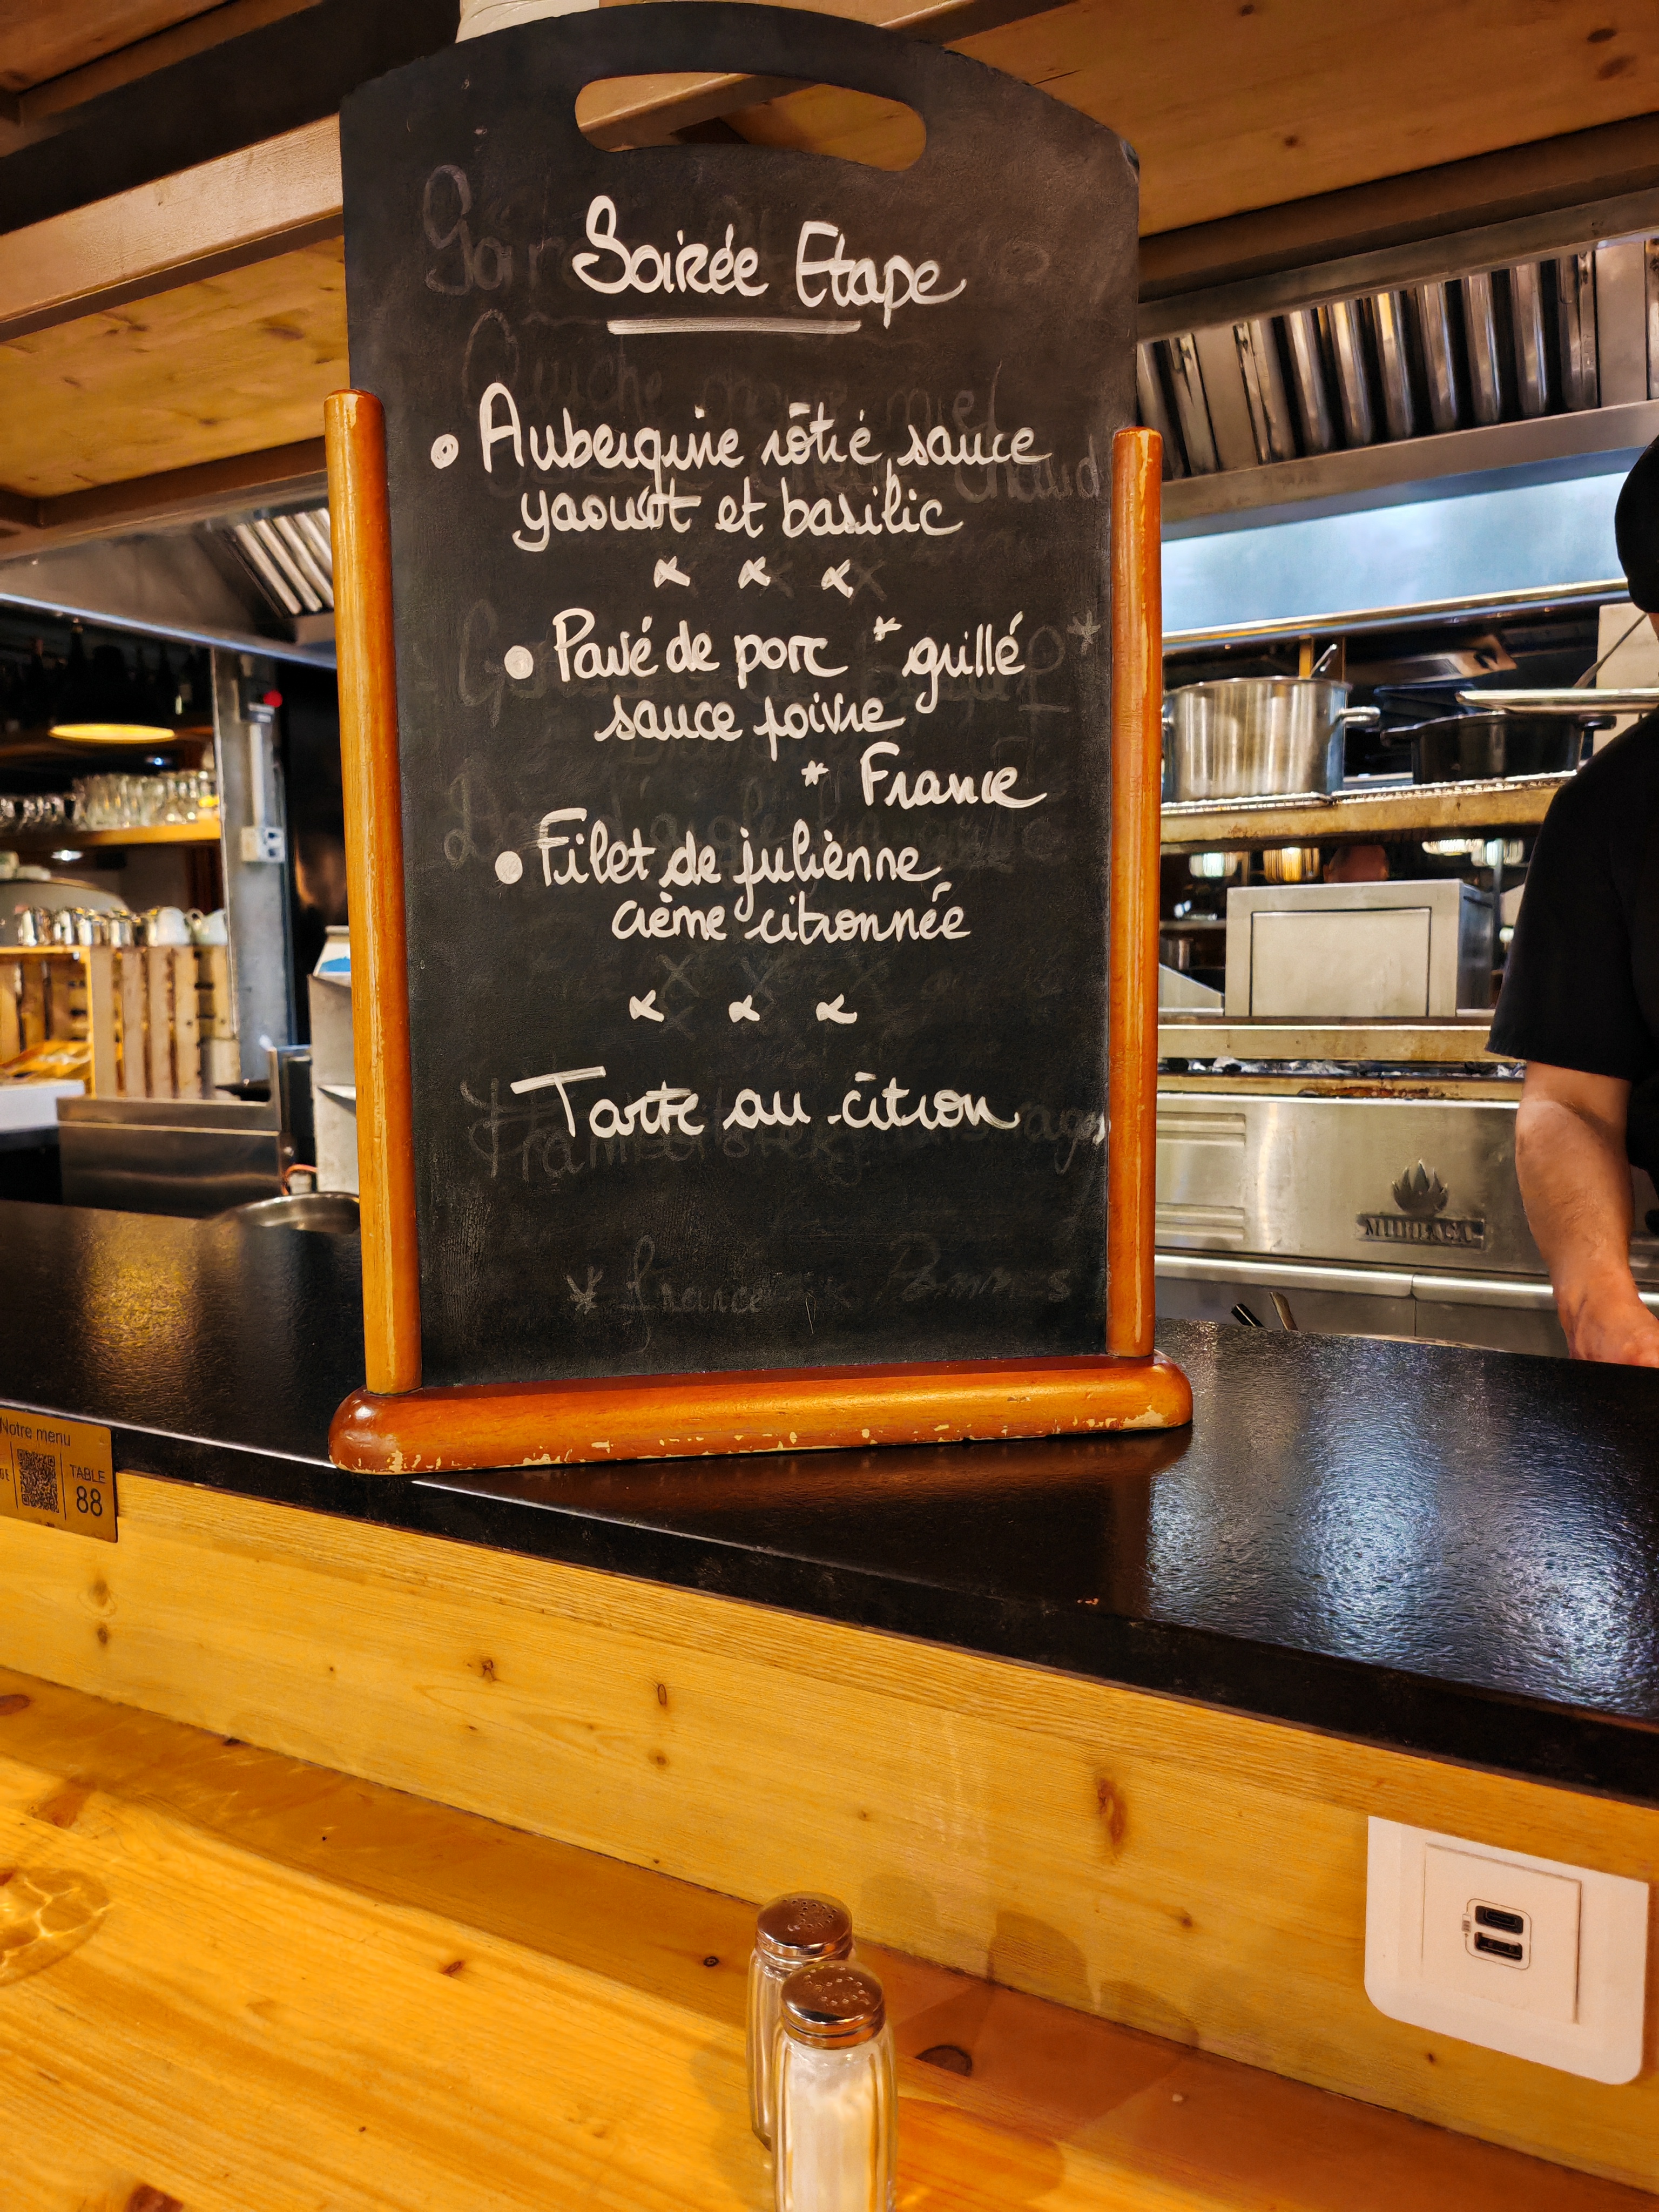 Soirée Etape
• Aubergine rôtie sauce
yaourt et basilic
• Pavé de porc * grillé
sauce poivre
* France
• Filet de julienne
crème citronnée
Tarte au citron
* France
Pommes
Notre menu
TABLE
88